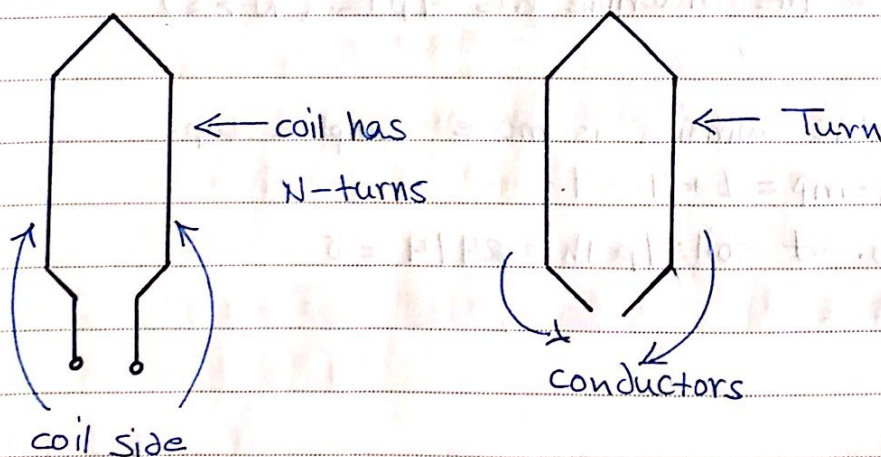 coil has
N-turns
Turn
conductors
coil side